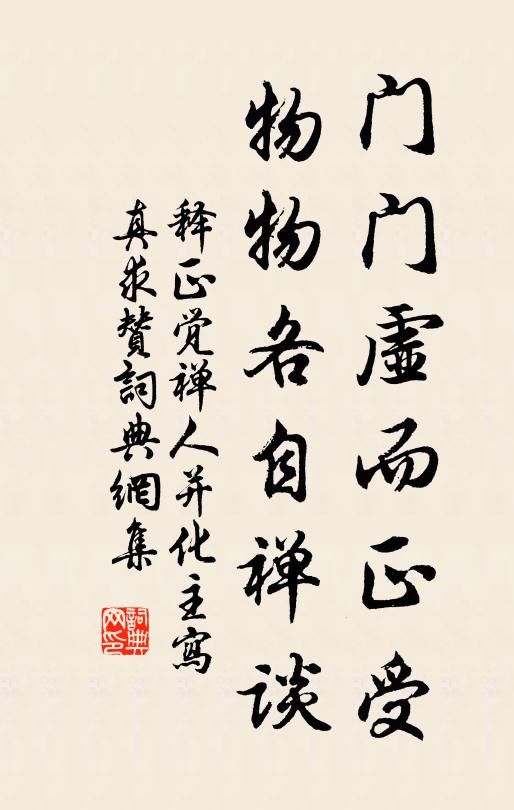 门门虚而正受
物物各自禅谈
释正觉禅人并化主寫
真求贊詞典網集
詞典
网印